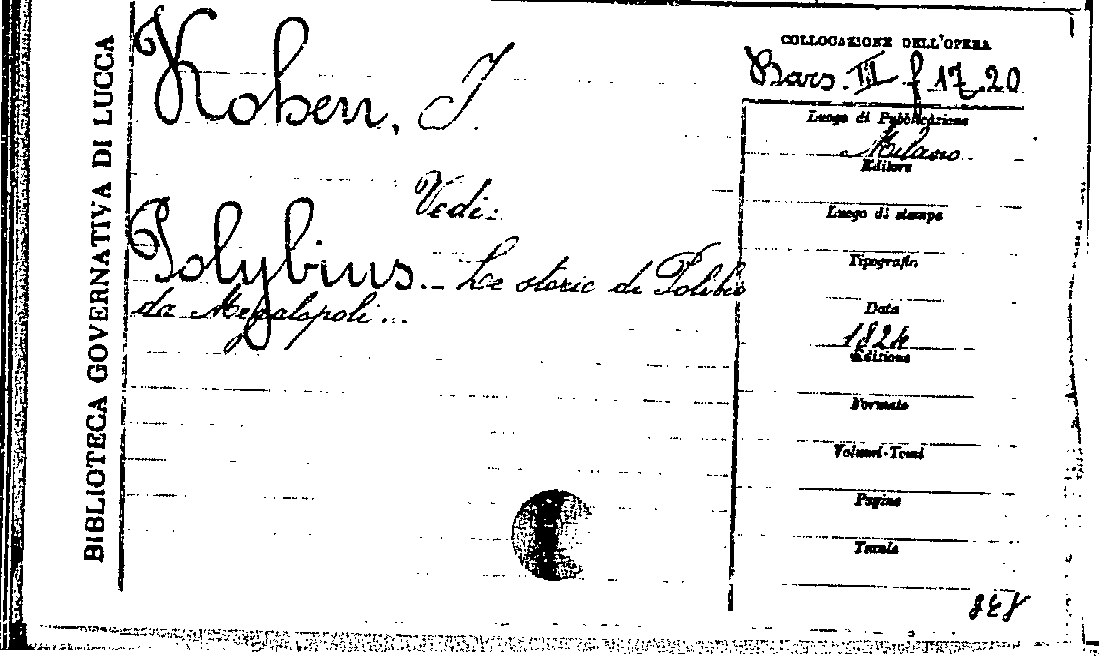 BIBLIOTECA GOVERNATIVA DI LUCCA
Kohen, J.
Vedi:
Polybius. - Le storie di Polibio
da Megalopoli...
COLLOCAZIONE DELL'OPERA
Bars. III f 17.20
Luogo di Pubblicazione
Milano
Editore
Luogo di stampa
Tipografo
Data
1824
Edizione
Formato
Volumi-Tomi
Pagine
Tavole